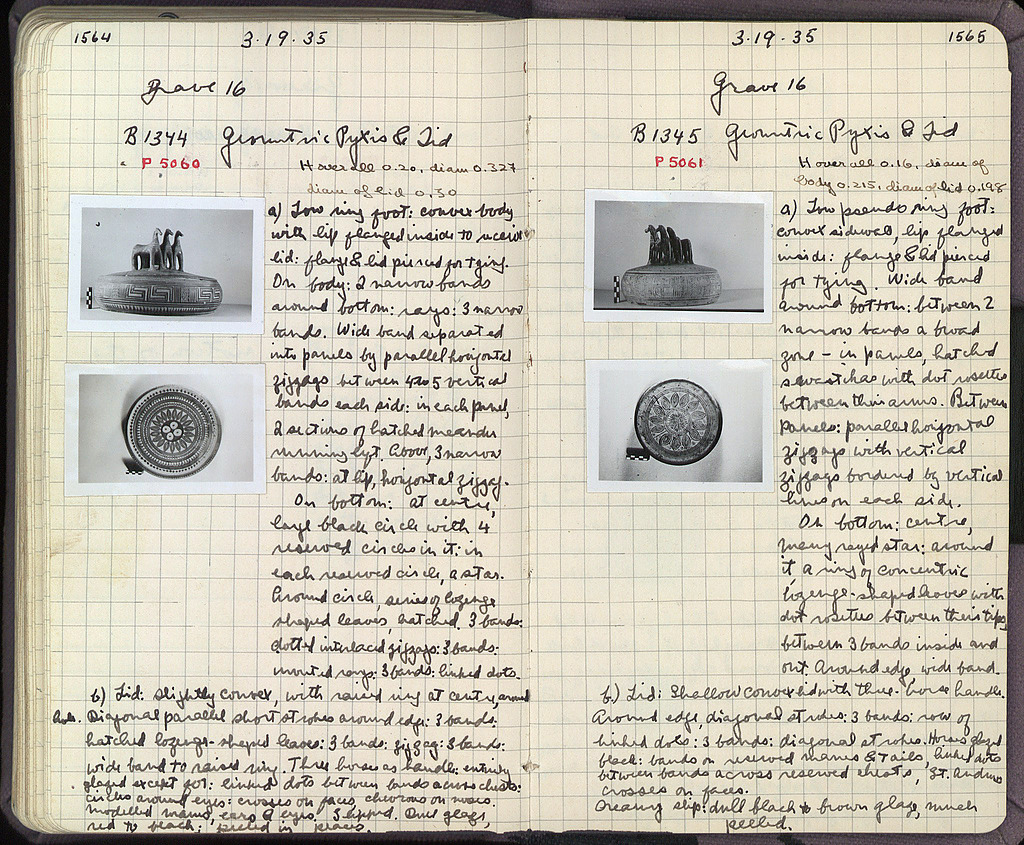 1564
3·19·35
Grave 16
B 1344 Geometric Pyxis & Lid
P 5060
H over all 0.20, diam 0.327
diam of lid 0.30
a) Low ring foot: convex body
with lip flanged inside to receive
lid: flange & lid pierced for tying.
On body: 2 narrow bands
around bottom: rays: 3 narrow
bands. Wide band separated
into panels by parallel horizontal
zigzags between 4 to 5 vertical
bands each side: in each panel,
2 sections of hatched meander
running left. Above, 3 narrow
bands: at lip, horizontal zigzag.
On bottom: at centre,
large black circle with 4
reserved circles in it: in
each reserved circle, a star.
Around circle, series of lozenge
shaped leaves, hatched. 3 bands:
dotted interlaced zigzags: 3 bands:
inverted rays: 3 bands: linked dots.
b) Lid: slightly convex, with raised ring at centre, around
Diagonal parallel short strokes around edge: 3 bands:
hatched lozenge-shaped leaves: 3 bands: zigzag: 3 bands:
wide band to raised ring. Three horses as handle: entirely
glazed except for: linked dots between bands across chests:
circles around eyes: crosses on faces, chevrons on noses.
Modelled manes, ears & eyes. Chipped. Dull glaze,
red to black: peeled in places.
3·19·35
1565
Grave 16
B 1345 Geometric Pyxis & Lid
P 5061
H over all 0.16, diam of
body 0.215, diam of lid 0.198
a) Low pseudo ring foot:
convex sidewall, lip flanged
inside: flange & lid pierced
for tying. Wide band
around bottom: between 2
narrow bands a broad
zone – in panels, hatched
swastikas with dot rosettes
between their arms. Between
panels: parallel horizontal
zigzags with vertical
zigzags bordered by vertical
lines on each side.
On bottom: centre,
many rayed star: around
it a ring of concentric
lozenge-shaped leaves with
dot rosettes between their tips
between 3 bands inside and
out. Around edge, wide band.
b) Lid: Shallow convex lid with three-horse handle.
Around edge, diagonal strokes: 3 bands: row of
linked dots: 3 bands: diagonal strokes. Horses glazed
black: bands on reserved manes & tails, linked dots
between bands across reserved chests, St. Andrews
crosses on faces.
Creamy slip: dull black to brown glaze, much
peeled.